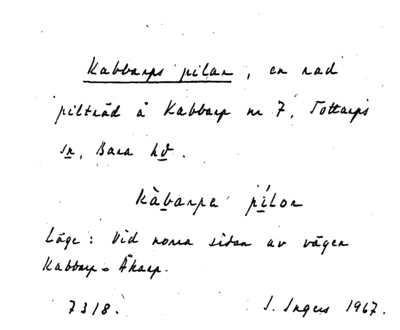 Kabbarps pilar, en rad
pilträd å Kabbarp nr 7, Tottarps
sn, Bara hd.
kàbarpa pílor
Läge: Vid norra sidan av vägen
Kabbarp - Åkarp.
7318. I. Ingers 1967.